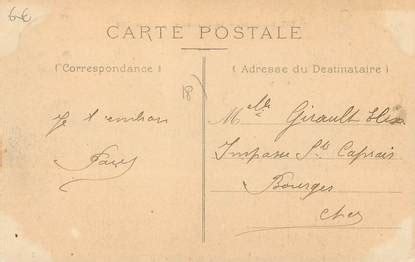 6€
CARTE POSTALE
(Correspondance)
(Adresse du Destinataire)
18
Je t'embrasse
Melle Girault
Impasse St Caprais
Bourges
Cher